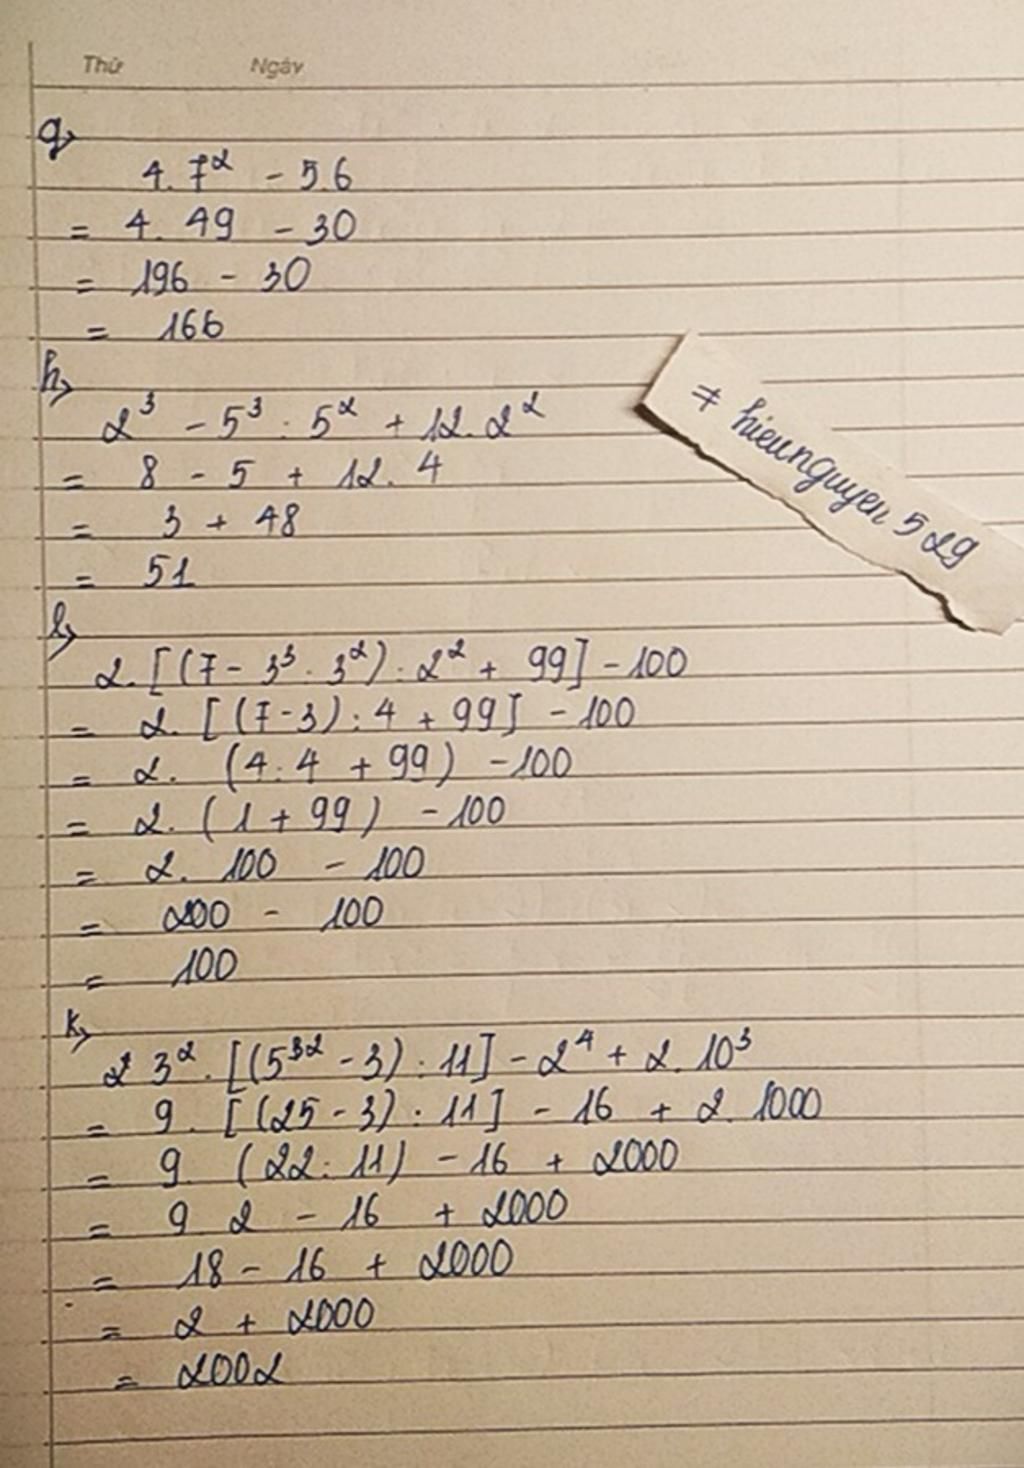 Thứ Ngày
g,
4. 7² - 5.6
= 4. 49 - 30
= 196 - 30
= 166
h,
2³ - 5³ : 5² + 12. 2²
= 8 - 5 + 12. 4
= 3 + 48
= 51
≠ hieunguyen 529
l,
2. [(7 - 3³ : 3²) : 2² + 99] - 100
= 2. [(7-3) : 4 + 99] - 100
= 2. (4 : 4 + 99) - 100
= 2. (1 + 99) - 100
= 2. 100 - 100
= 200 - 100
= 100
k,
2 3². [(5³² - 3) : 11] - 2⁴ + 2. 10³
= 9 . [(25 - 3) : 11] - 16 + 2. 1000
= 9 (22 : 11) - 16 + 2000
= 9 2 - 16 + 2000
= 18 - 16 + 2000
= 2 + 2000
= 2002